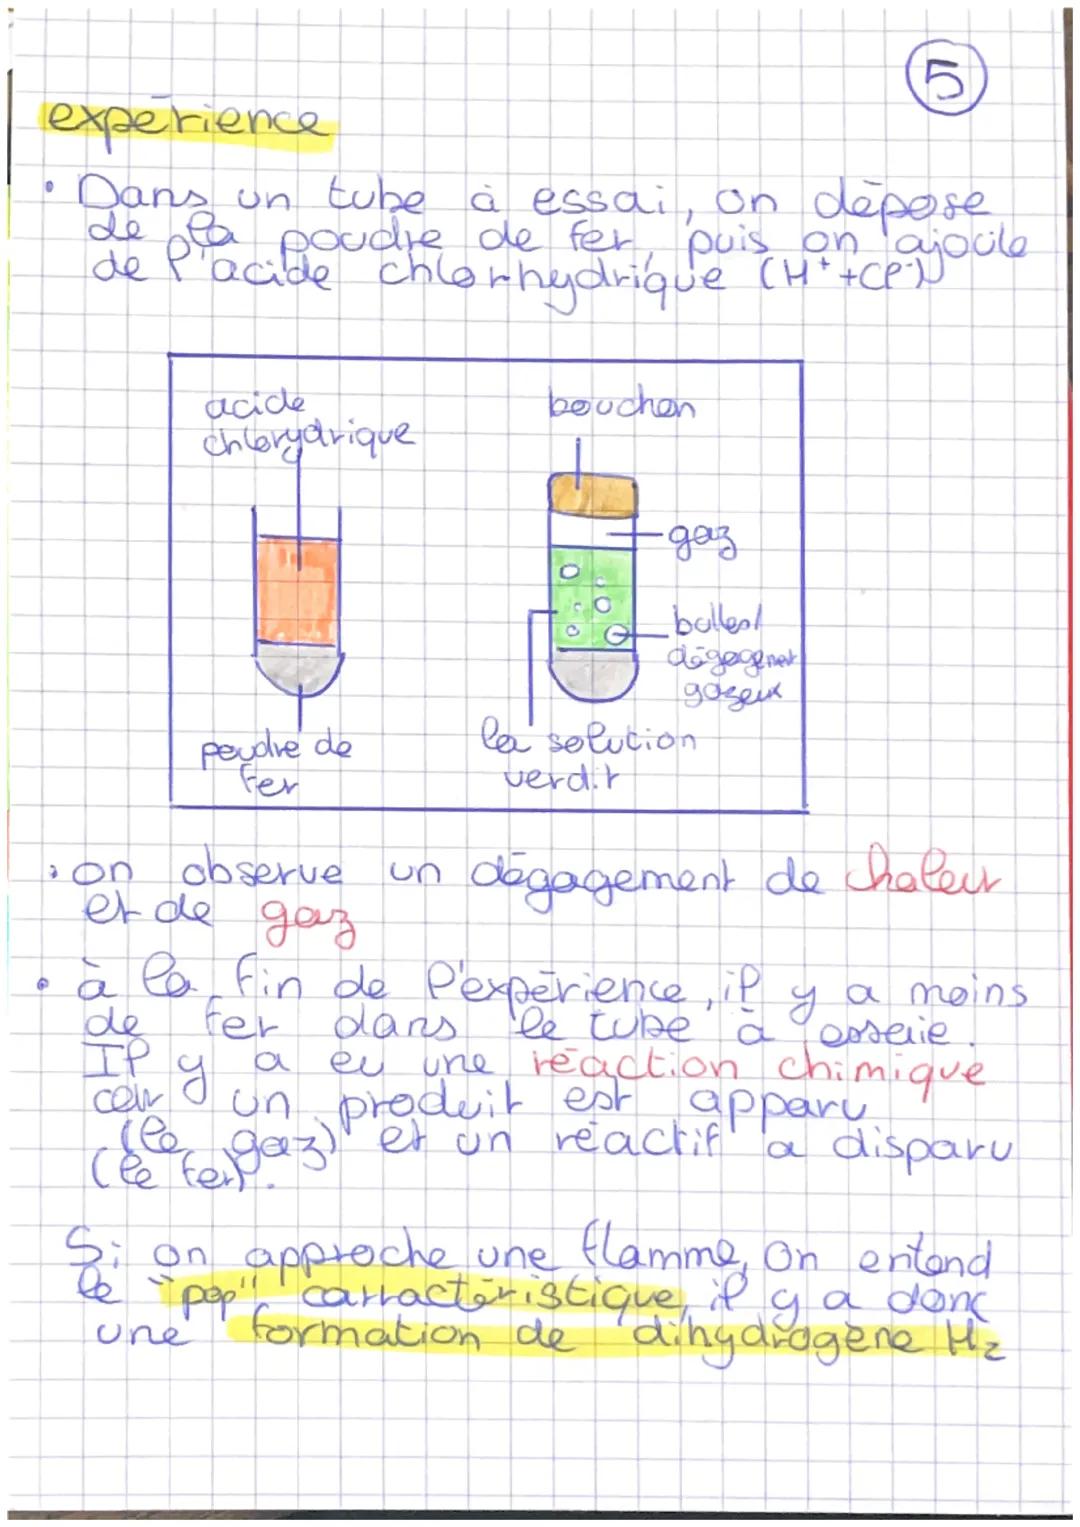 5
expérience
• Dans un tube à essai, on dépose
de la poudre de fer, puis on ajoute
de l'acide chlorhydrique (H⁺+Cl⁻)
acide
chlorydrique
bouchon
gaz
bulles/
dégagement
gazeux
poudre de
fer
la solution
verdit
• on observe un dégagement de chaleur
et de gaz
• à la fin de l'expérience, il y a moins
de fer dans le tube à essaie.
Il y a eu une réaction chimique
car un produit est apparu
(le gaz) et un réactif a disparu
(le fer).
Si on approche une flamme, on entend
le "pop" carractéristique, il y a donc
une formation de dihydrogène H₂